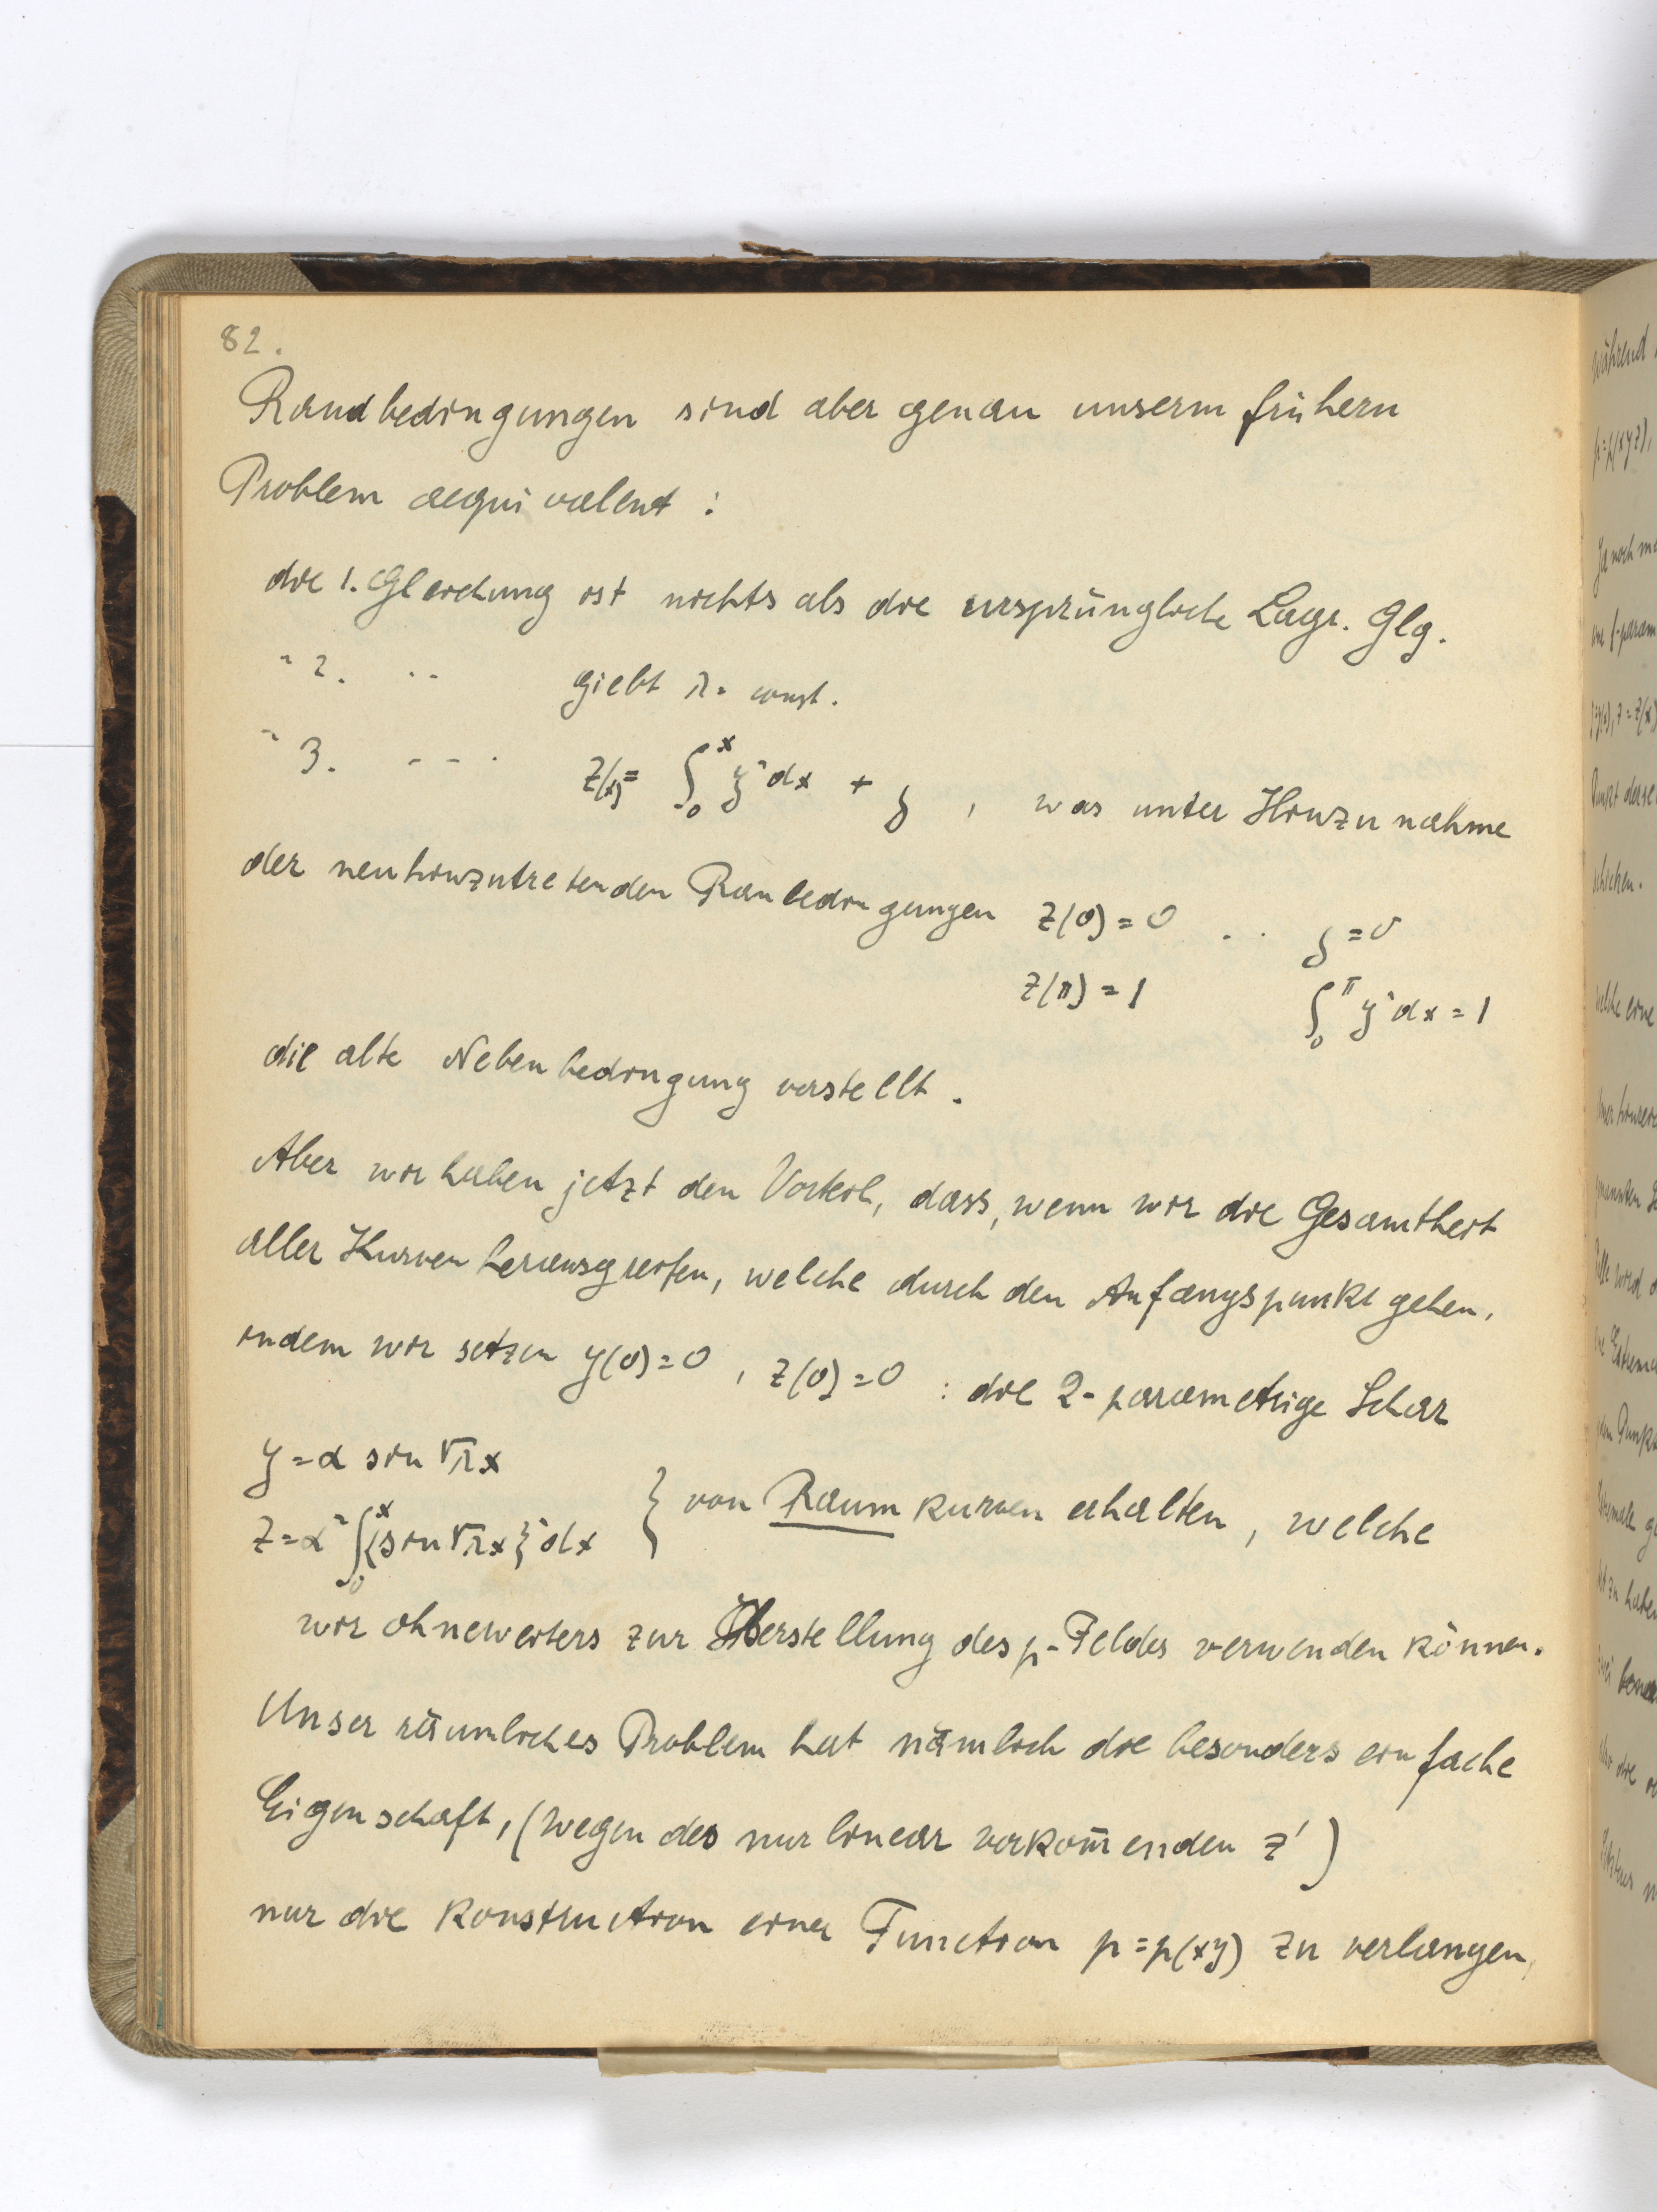 82.
Randbedingungen sind aber genau unserm frühern
Problem aequivalent :
die 1. Gleichung ist nichts als die ursprüngliche Lagr. Glg.
" 2. " giebt λ = const.
" 3. " z(x) = ∫₀ˣ y² dx + ζ , was unter Hinzunahme
der neuhinzutretenden Ranbedingungen z(0) = 0 .. ζ = 0
z(π) = 1 ∫₀^π y² dx = 1
die alte Nebenbedingung vorstellt.
Aber wir haben jetzt den Vorteil, dass, wenn wir die Gesamtheit
aller Kurven herausgreifen, welche durch den Anfangspunkt gehen,
indem wir setzen y(0) = 0 , z(0) = 0 : die 2-parametrige Schar
y = α sin √λ x
z = α² ∫₀ˣ {sin √λ x}² dx } von Raumkurven erhalten, welche
wir ohneweiters zur Herstellung des p-Feldes verwenden können.
Unser räumliches Problem hat nämlich die besonders einfache
Eigenschaft, (wegen des nur linear vorkom̄enden z')
nur die Konstruction einer Function p = p(xy) zu verlangen,
während
p = p(xyz),